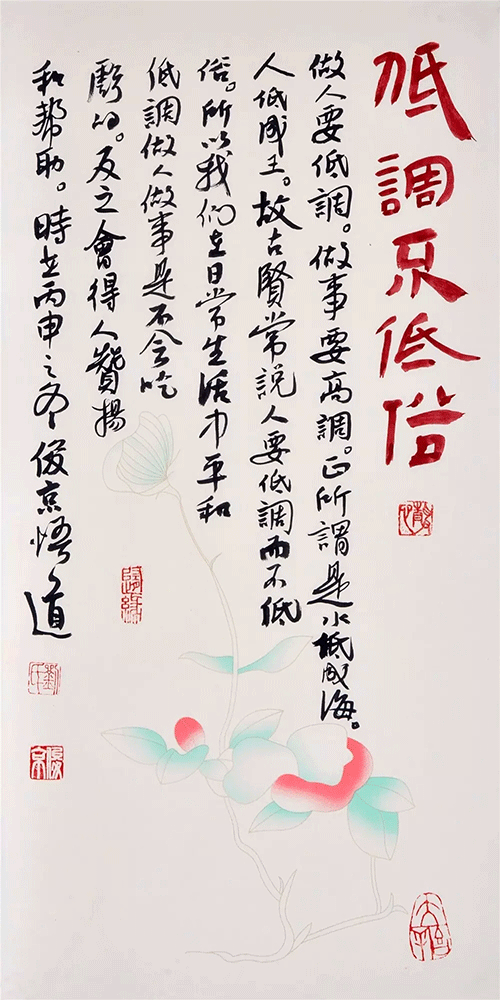 低調不低俗
做人要低調。做事要高調。正所謂是水低成海。
人低成王。故古賢常說人要低調而不低
俗。所以我們在日常生活中平和
低調做人做事是不会吃
虧的。反之會得人贊揚
和幫助。時在丙申之冬俊京悟道
隨緣
俊京